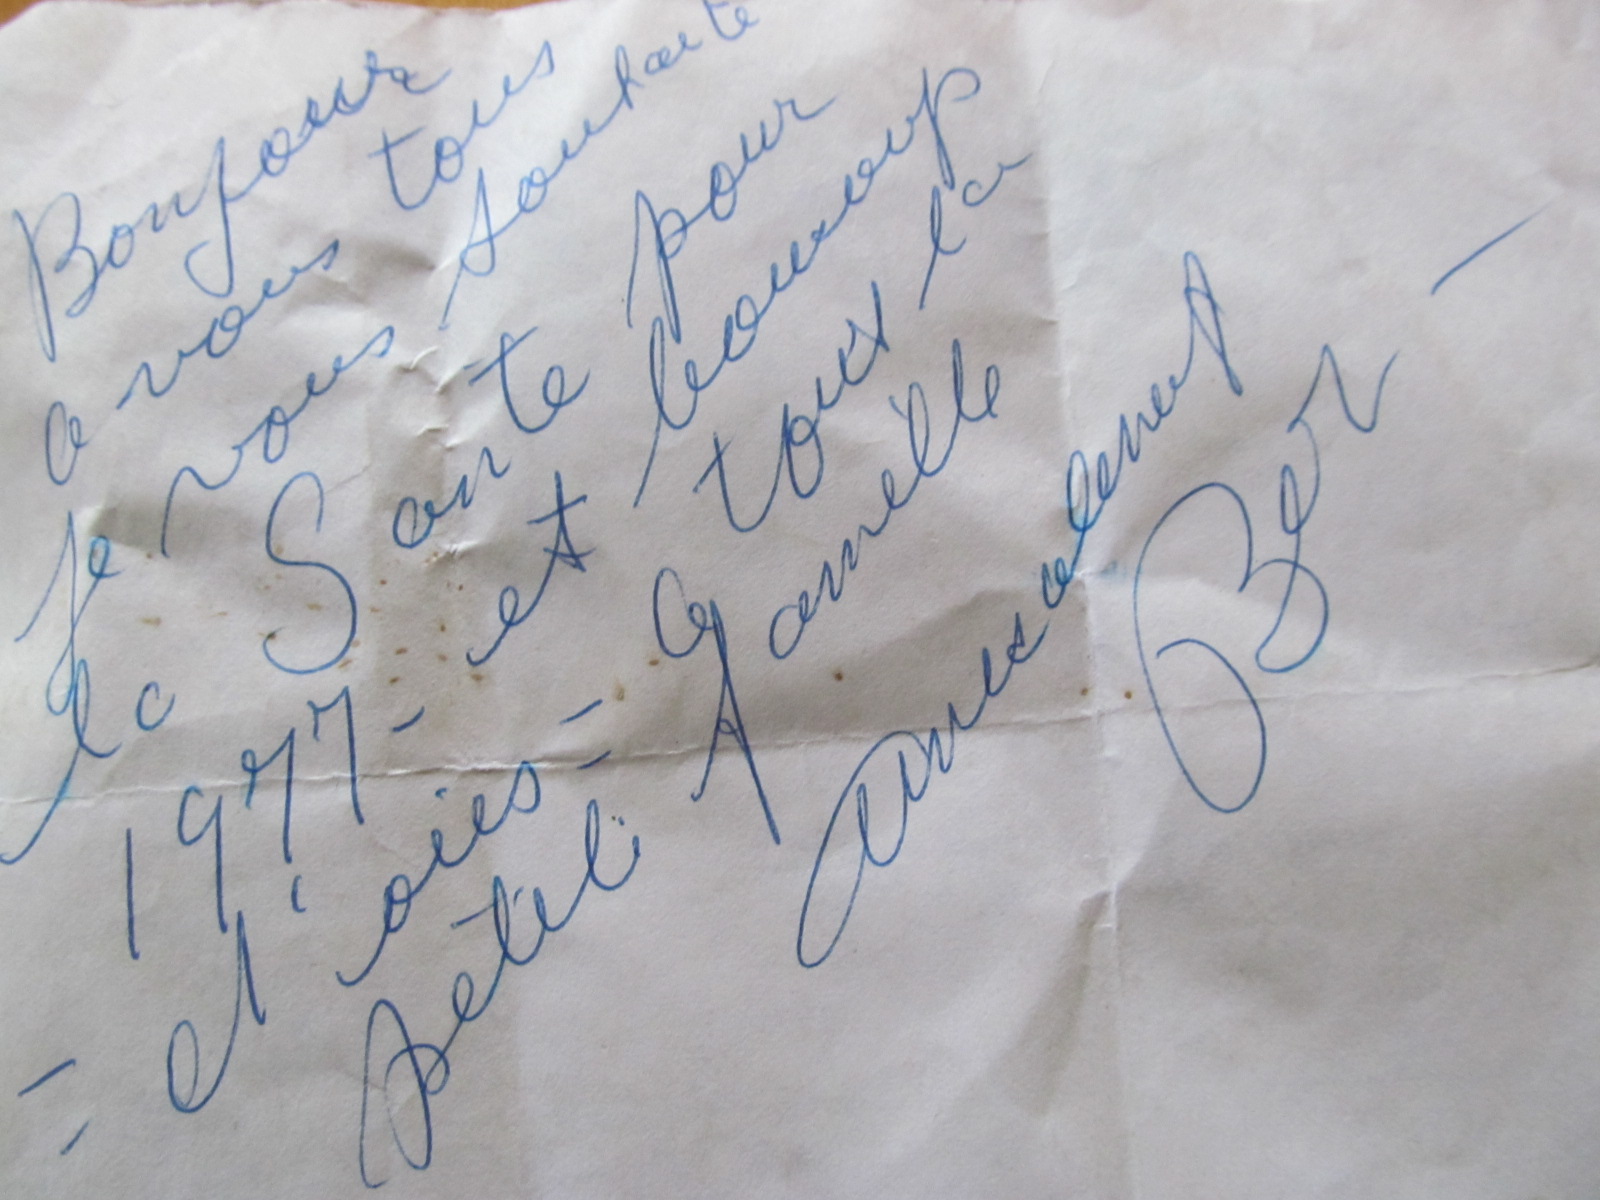 Bonjour
a vous tous
Je vous souhaite
la Sante pour
1977 - et beaucoup
= d'oies = a tout la
peteti famille
amicalement
Ber -